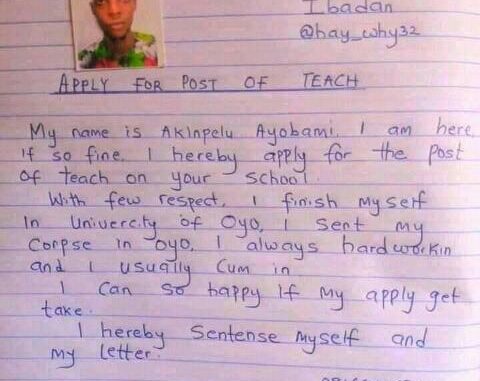 Ibadan
@hay_why32
APPLY FOR POST OF TEACH
My name is Akinpelu Ayobami. I am here,
If so fine. I hereby apply for the post
of teach on your school.
With few respect, I finish myself
In Univercity of Oyo, I sent my
Corpse in oyo, I always hardworkin
and I usually Cum in
I Can so happy If my apply get
take.
I hereby Sentense myself and
my letter.